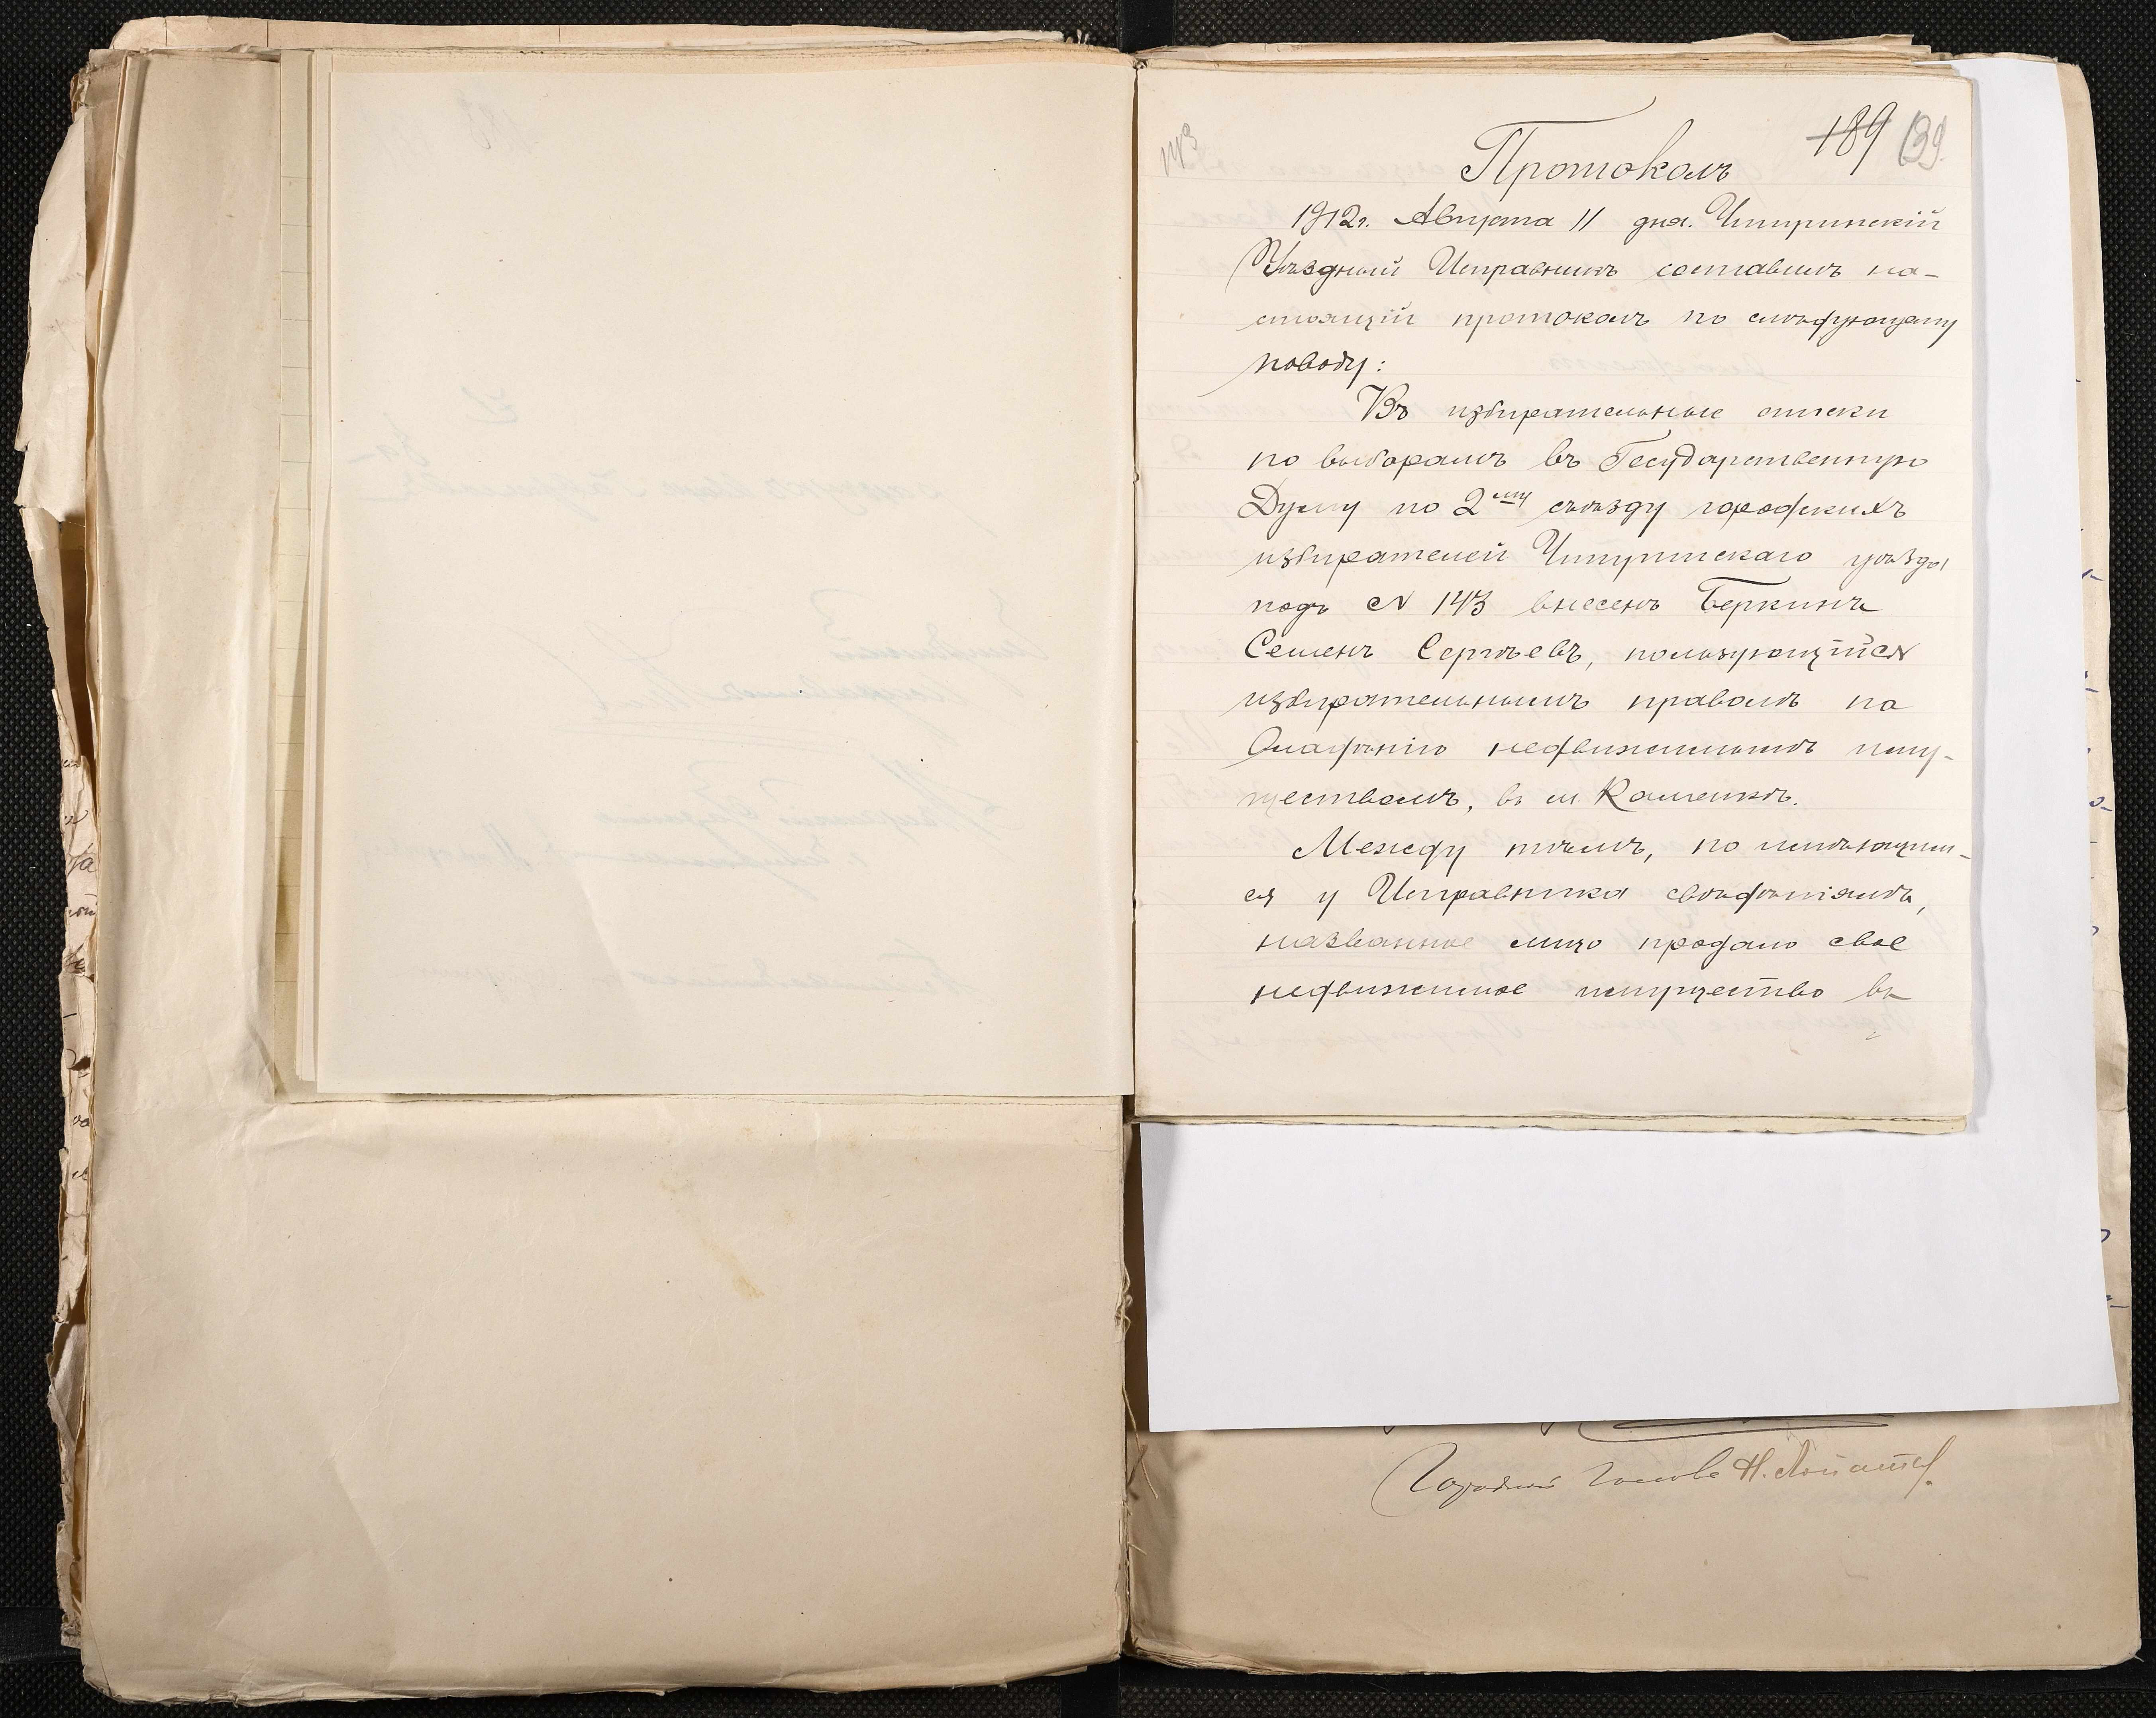 143
189 139
Протоколъ
1912г. Августа 11 дня. Чигиринскій
Уѣздный Исправникъ составилъ на-
стоящій протоколъ по слѣдующему
поводу:
Въ избирательные списки
по выборамъ въ Государственную
Думу по 2му съѣзду городскихъ
избирателей Чигиринскаго уѣзда
подъ № 143 внесенъ Беркинъ
Семенъ Сергѣевъ, пользующійся
избирательнымъ правомъ по
владѣнію недвижимымъ иму-
ществомъ, въ м Каменкѣ.
Между тѣмъ, по имѣющим-
ся у Исправника свѣдѣніямъ,
названное лицо продало свое
недвижимое имущество въ
Городской Голова Н.